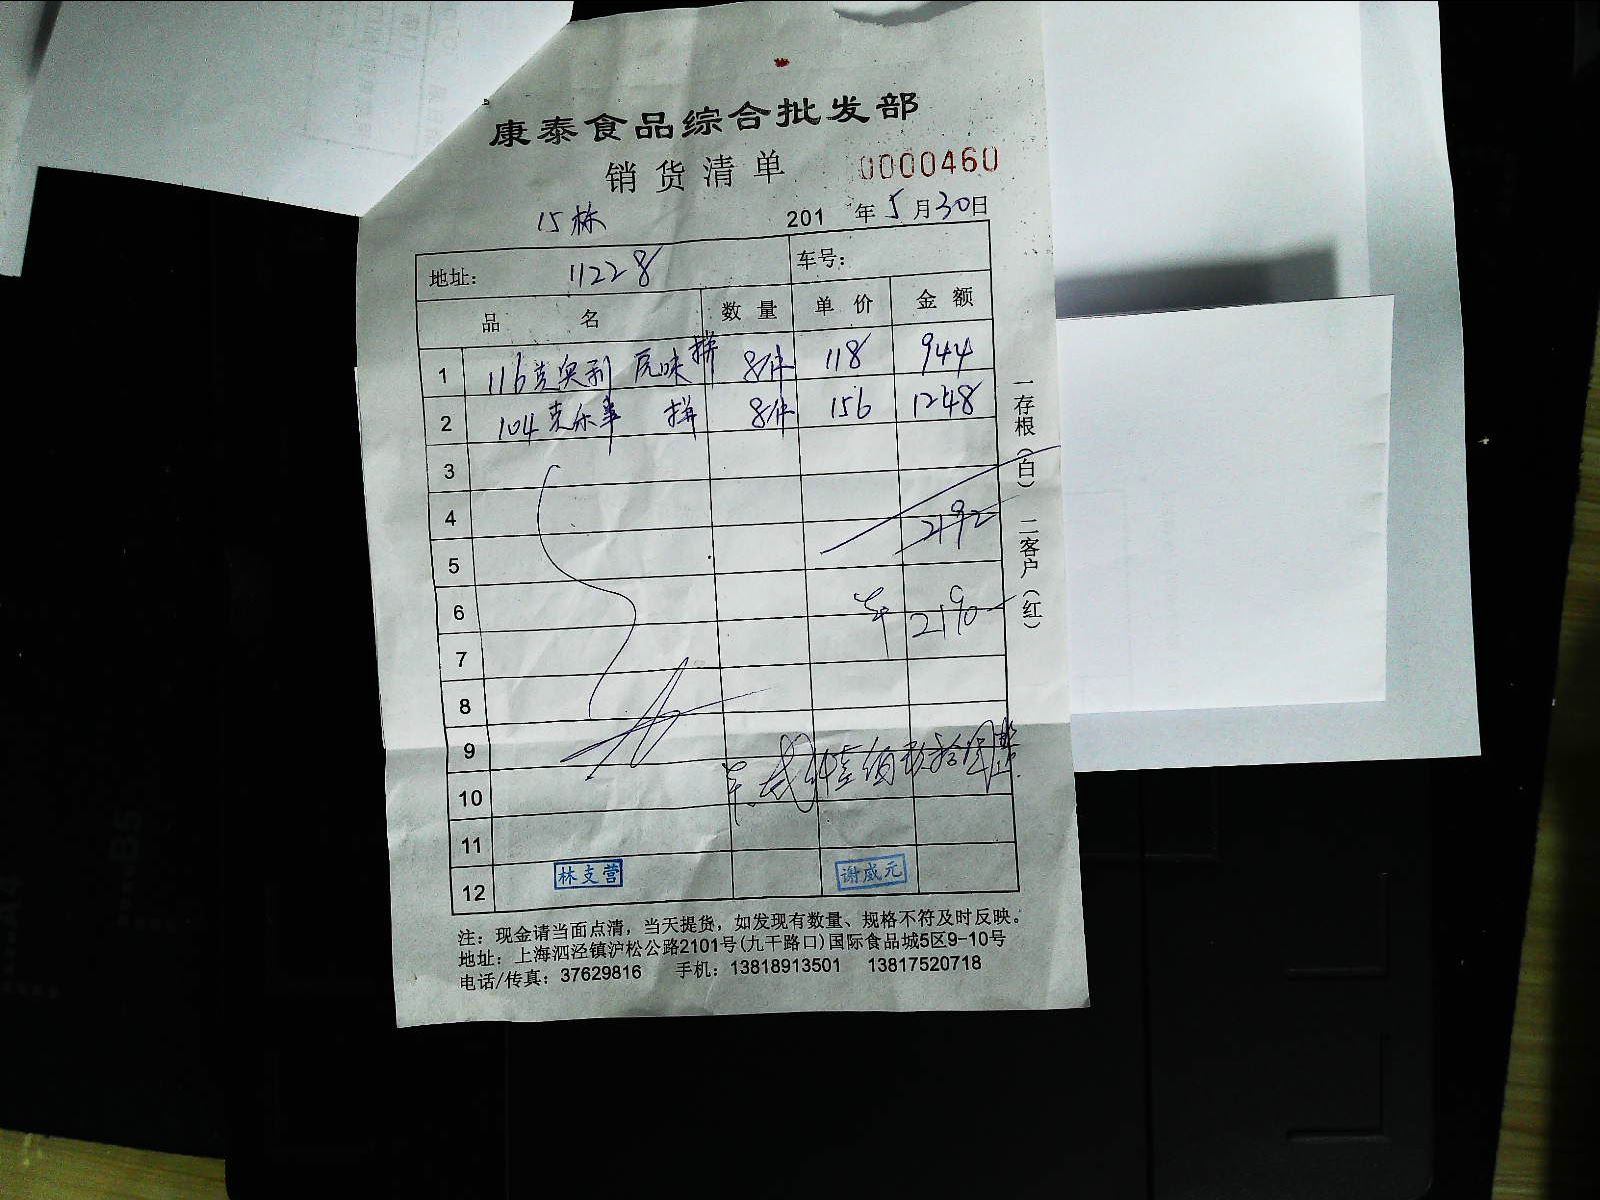 康泰食品综合批发部
销货清单 0000460
15栋 201 年5月30日
地址: 11228 车号:
品 名 数量 单价 金额
1 116克奥利 原味 拼 8件 118 944
2 104克乐事 拼 8件 156 1248
3
4 2192
5
6 2190
7
8
9
10
11
12 林支营 谢威元
一存根(白) 二客户(红)
注: 现金请当面点清,当天提货,如发现有数量、规格不符及时反映。
地址: 上海泗泾镇沪松公路2101号(九干路口)国际食品城5区9-10号
电话/传真: 37629816 手机: 13818913501 13817520718